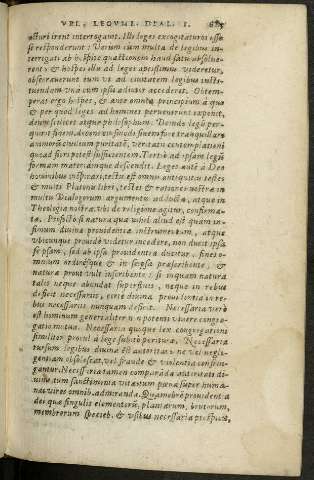 VPL. LEGVM. DIAL. I.
acturi irent interrogant. Illi leges excogitaturos esse
se responderunt: Verum cum multa de legibus in-
terrogati ab hospite quaestionem haud satis absolue-
rent, & hospes ille ad leges aptissimus videretur,
obsecrauerunt eum vt ad ciuitatem legibus insti-
tuendam vna cum ipsi adiutor accederet. Obtem-
perat ergo hospes, & ante omnia principium à quo
& per quod leges ad homines peruenerunt exponit,
deum scilicet atque
quirat finem, docens
animorum ciuilem puritatē, veritatis contemplationi
quoad fieri potest sufficientem. Tertiò ad ipsam legum
formam materiamque descendit. Leges autē à Deo
hominibus inspirari, testis est omnis antiquitas testes
& multi Platonis libri, testes & rationes nostrae in
multis Dialogorum argumentis adductae, atque in
Theologia nostra. vbi de religione agitur, confirma-
tae. Profectò si natura quae nihil aliud est quàm in-
fimum diuinae prouidentiae instrumentum, atque
vbicunque prouidè videtur incedere, non ducit ipsa
se ipsam, sed ab ipsa prouidentia ducitur, fines o-
mnium ordinesque & in seipsa praescribente, &
natura prout vult inscribente: si inquam natura
talis neque abundat superfluis, neque in rebus
deficit necessariis, certè diuina prouidentia in re-
bus necessariis nunquam deficit. Necessaria verò
est hominum generi
gatio mutua. Necessaria quoque lex congregationi
similiter prout à lege subito peritura. Necessaria
rursum legibus diuina est autoritas: ne vel negli-
gentiam obsolescat, vel fraude & violentia confrin-
gantur. Necessaria tamen comparanda autoritati di-
uinae, tum sanctimonia vitae, tum
nas vires omnib. admiranda. Quamobrem prouidentia
dei quae singulis elementorū, plantarum, brutorum,
membrorum speciebꝰ. & vsibus necessaria prospicit,